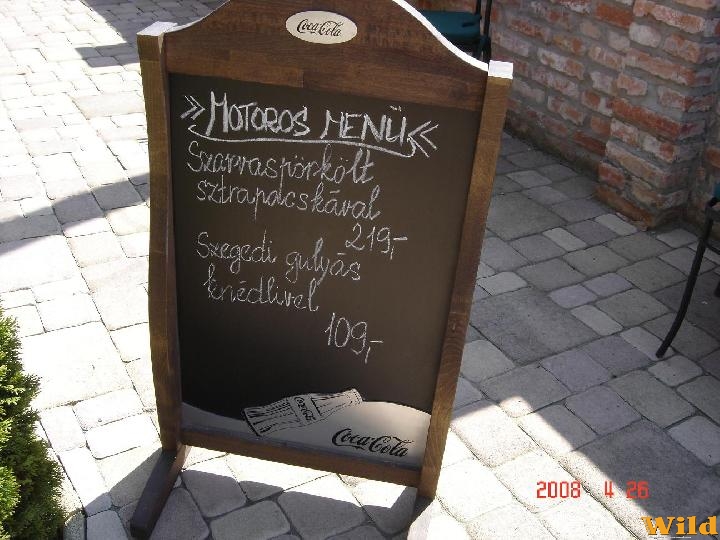 Coca-Cola
»MOTOROS MENÜ«
Szarvaspörkölt
sztrapacskával
219,-
Szegedi gulyás
knédlivel
109,-
Coca-Cola
Coca-Cola
2008 4 26
Wild